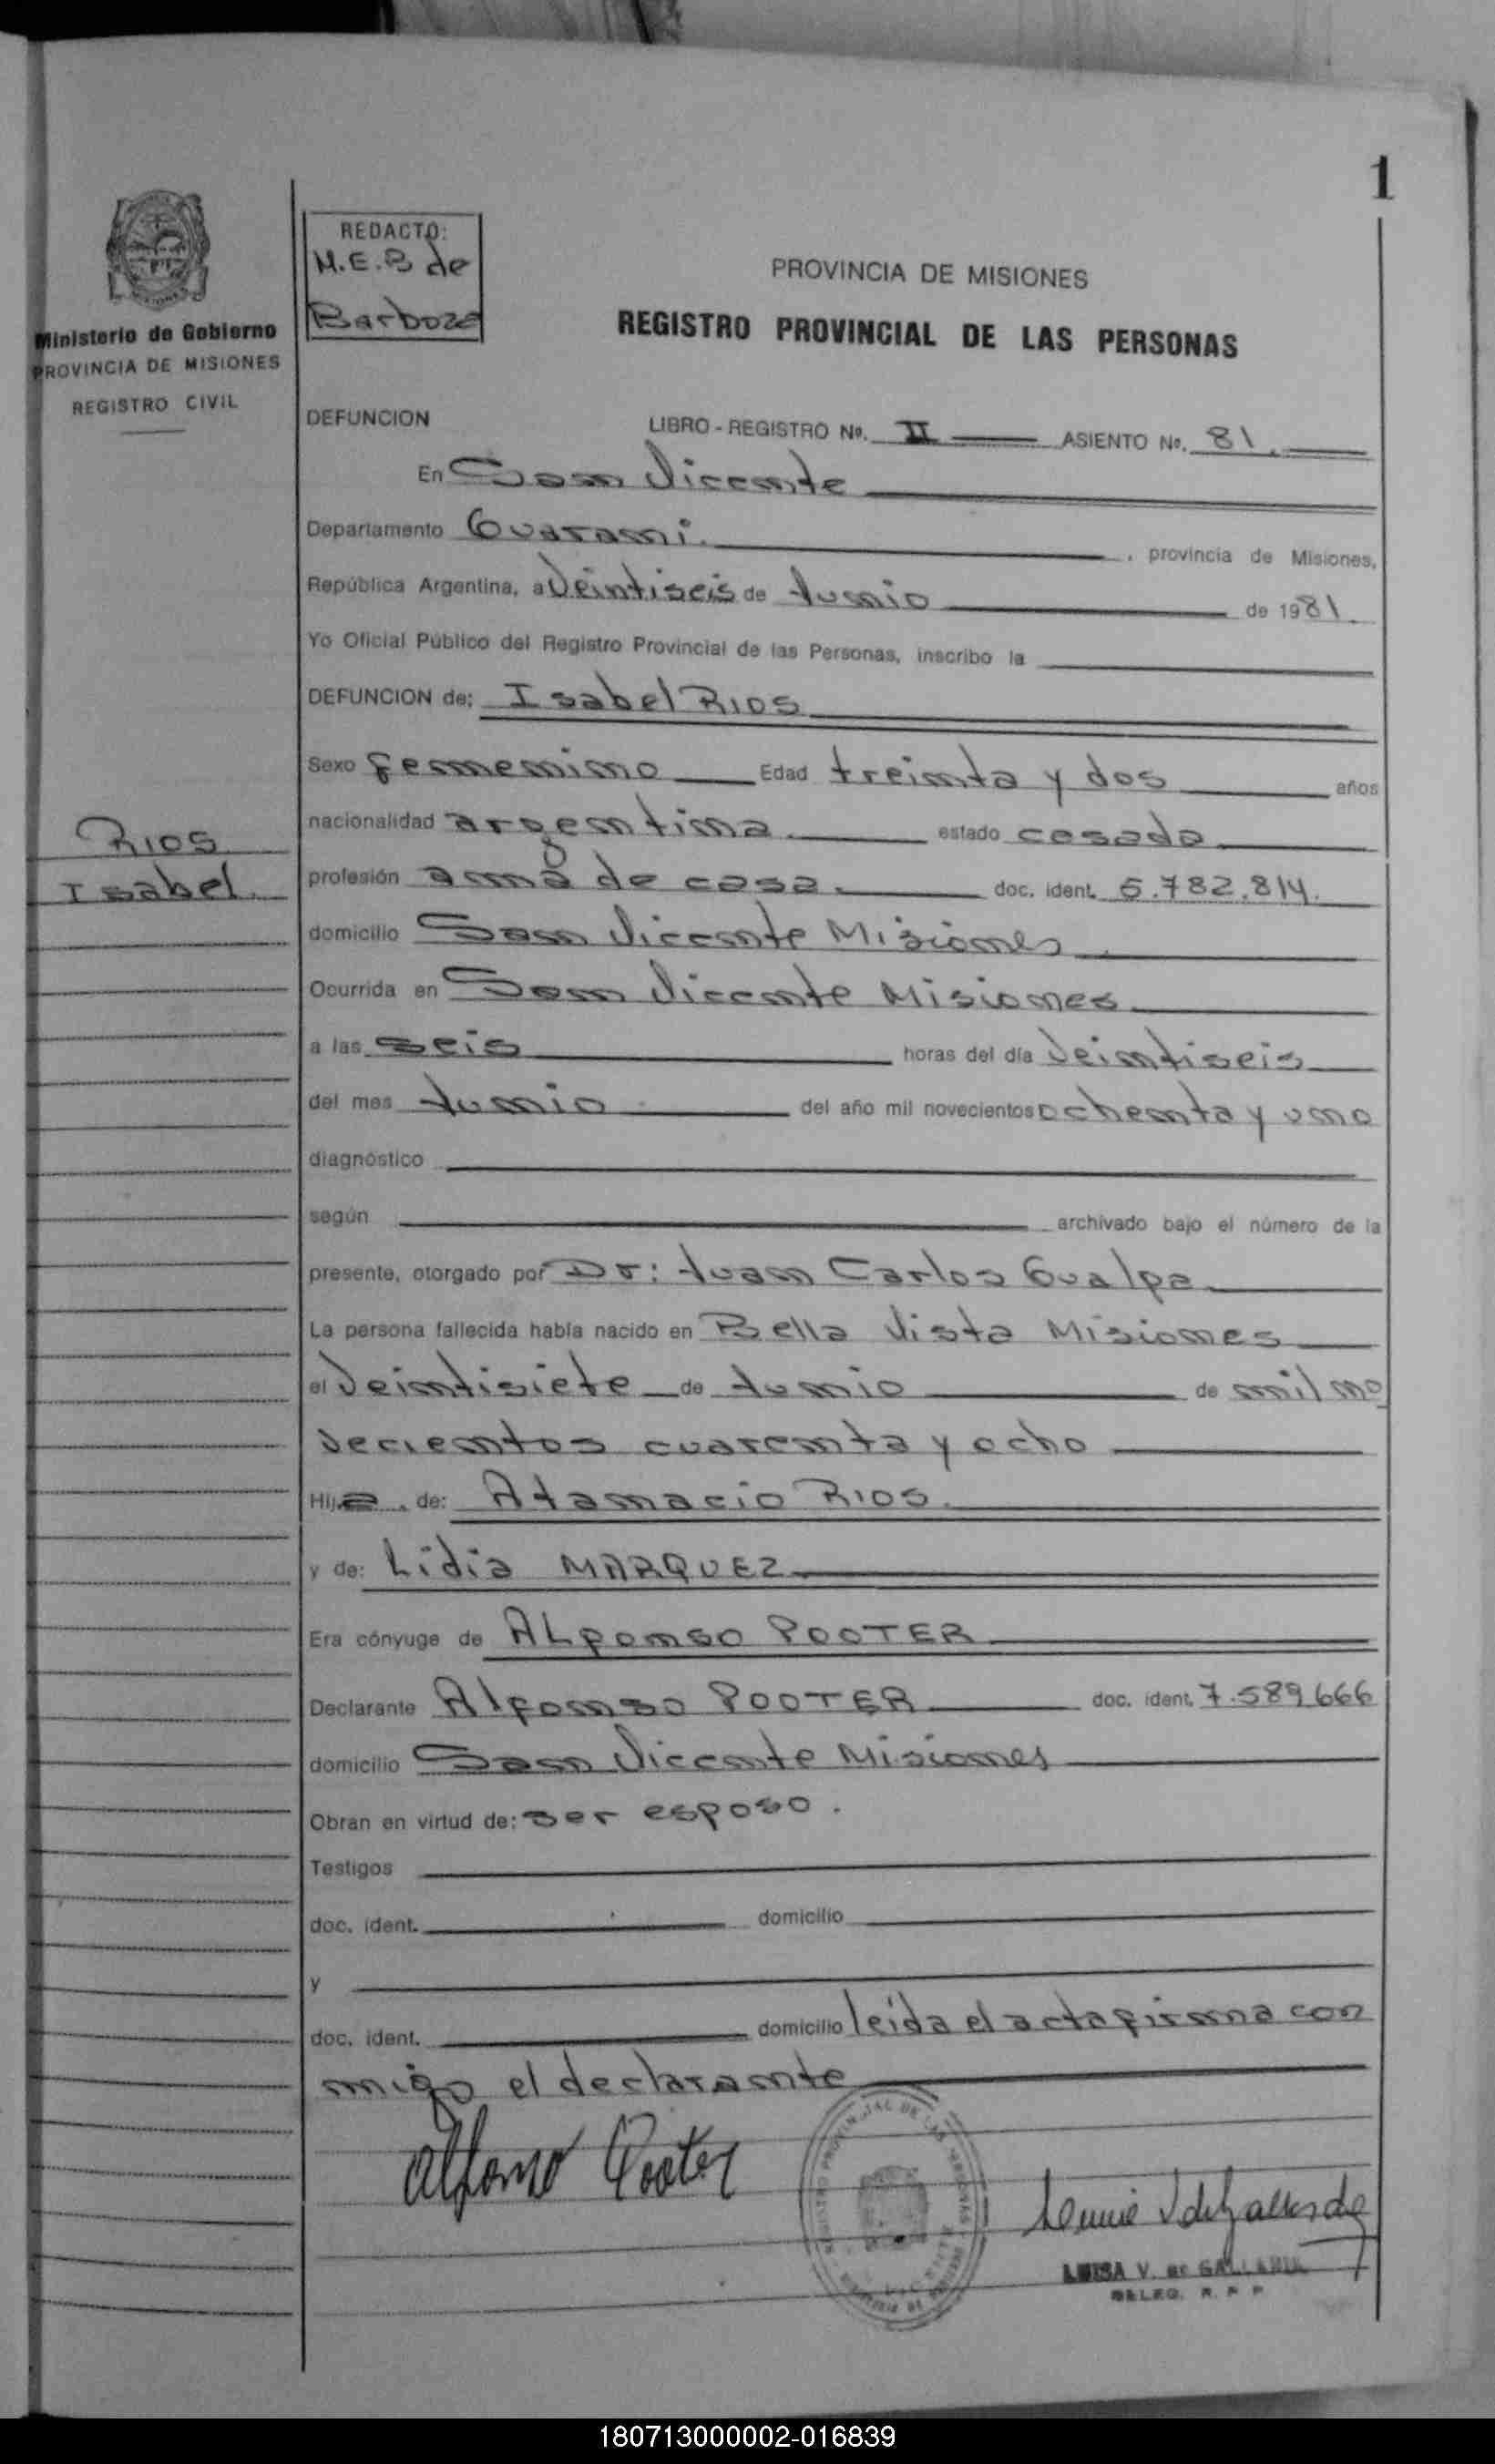 1
REDACTO:
M.E.B de
Barboza
MISIONES
Ministerio de Gobierno
PROVINCIA DE MISIONES
REGISTRO CIVIL
PROVINCIA DE MISIONES
REGISTRO PROVINCIAL DE LAS PERSONAS
DEFUNCION LIBRO - REGISTRO Nº. II ASIENTO Nº. 81.
En San Vicente
Departamento Guarani. , provincia de Misiones,
República Argentina, a Veintiseis de Junio de 1981.
Yo Oficial Público del Registro Provincial de las Personas, inscribo la
DEFUNCION de: Isabel RIOS
Sexo femenino Edad treinta y dos años
nacionalidad argentina. estado casada
Rios
Isabel.
profesión ama de casa. doc. ident. 5.782.814.
domicilio San Vicente Misiones
Ocurrida en San Vicente Misiones
a las seis horas del día Veintiseis
del mes Junio del año mil novecientos ochenta y uno
diagnóstico
según archivado bajo el número de la
presente, otorgado por Dr: Juan Carlos Gualpa
La persona fallecida había nacido en Bella Vista Misiones
el Veintisiete de Junio de mil no
vecientos cuarenta y ocho
Hija. de: Atanacio RIOS.
y de: Lidia MARQUEZ
Era cónyuge de ALfonso POOTER
Declarante Alfonso POOTER doc. ident. 7.589.666
domicilio San Vicente Misiones
Obran en virtud de: ser esposo.
Testigos
doc. ident. domicilio
y
doc. ident. domicilio leída el acta firma con
migo el declarante
Alfonso Pooter
LUISA V. de GALLARDE
DELEG. R. P. P.
180713000002-016839